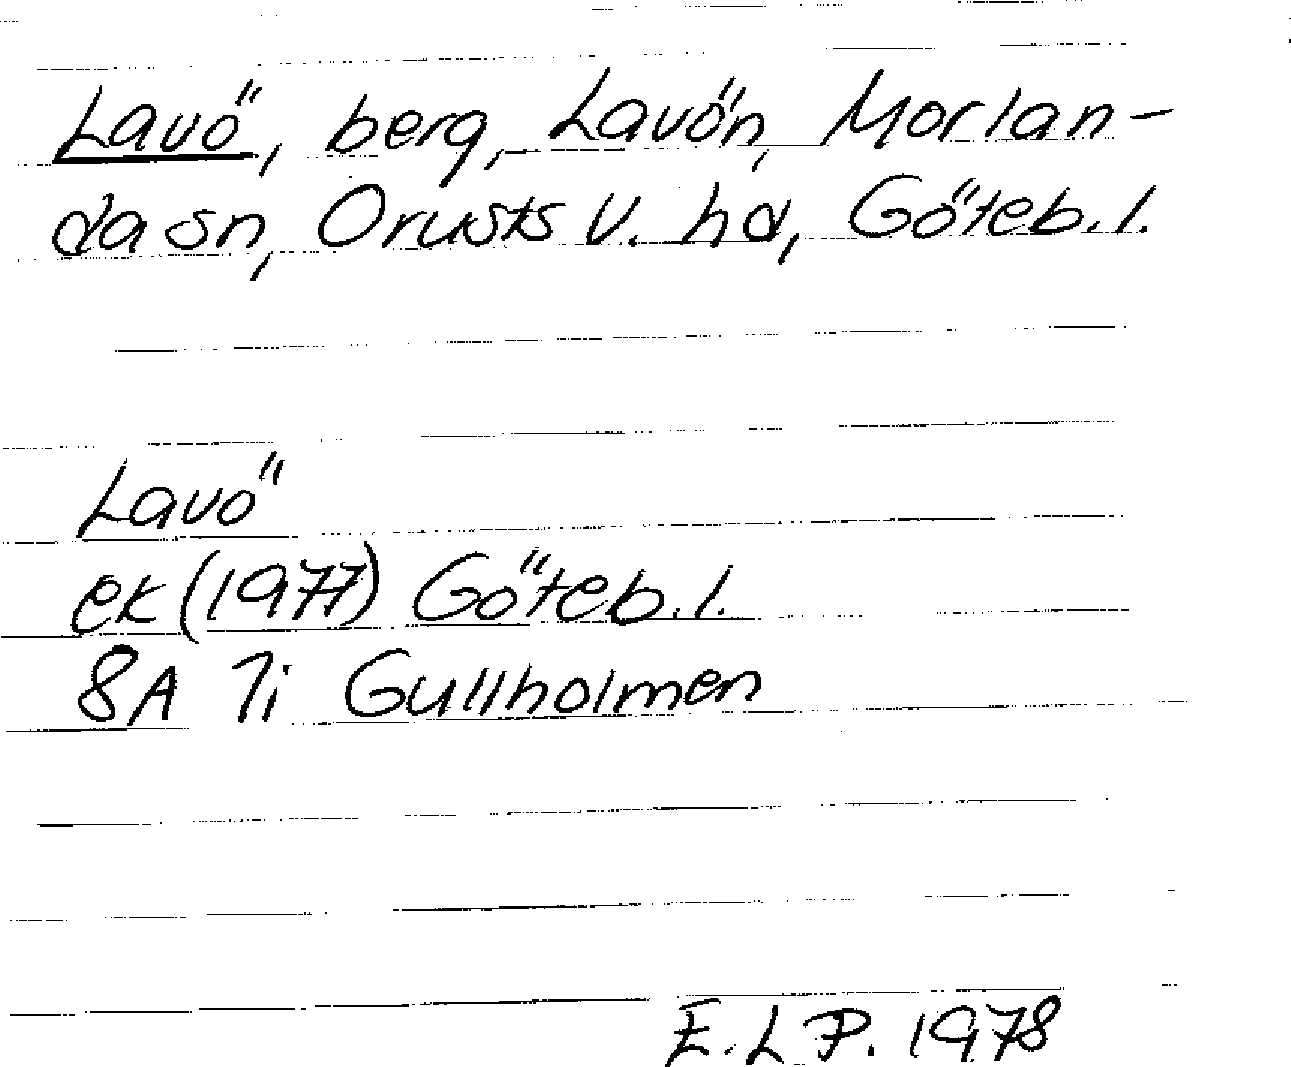 Lavö, berg, Lavön, Morlan-
da sn, Orusts V. hd, Göteb. l.
Lavö
ek (1977) Göteb. l.
8A 7i Gullholmen
E. L P. 1978